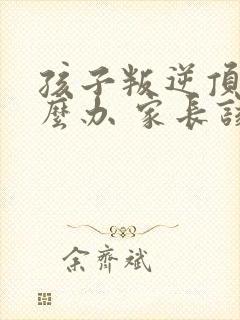 孩子叛逆頂
麼办 家長該
余齊斌